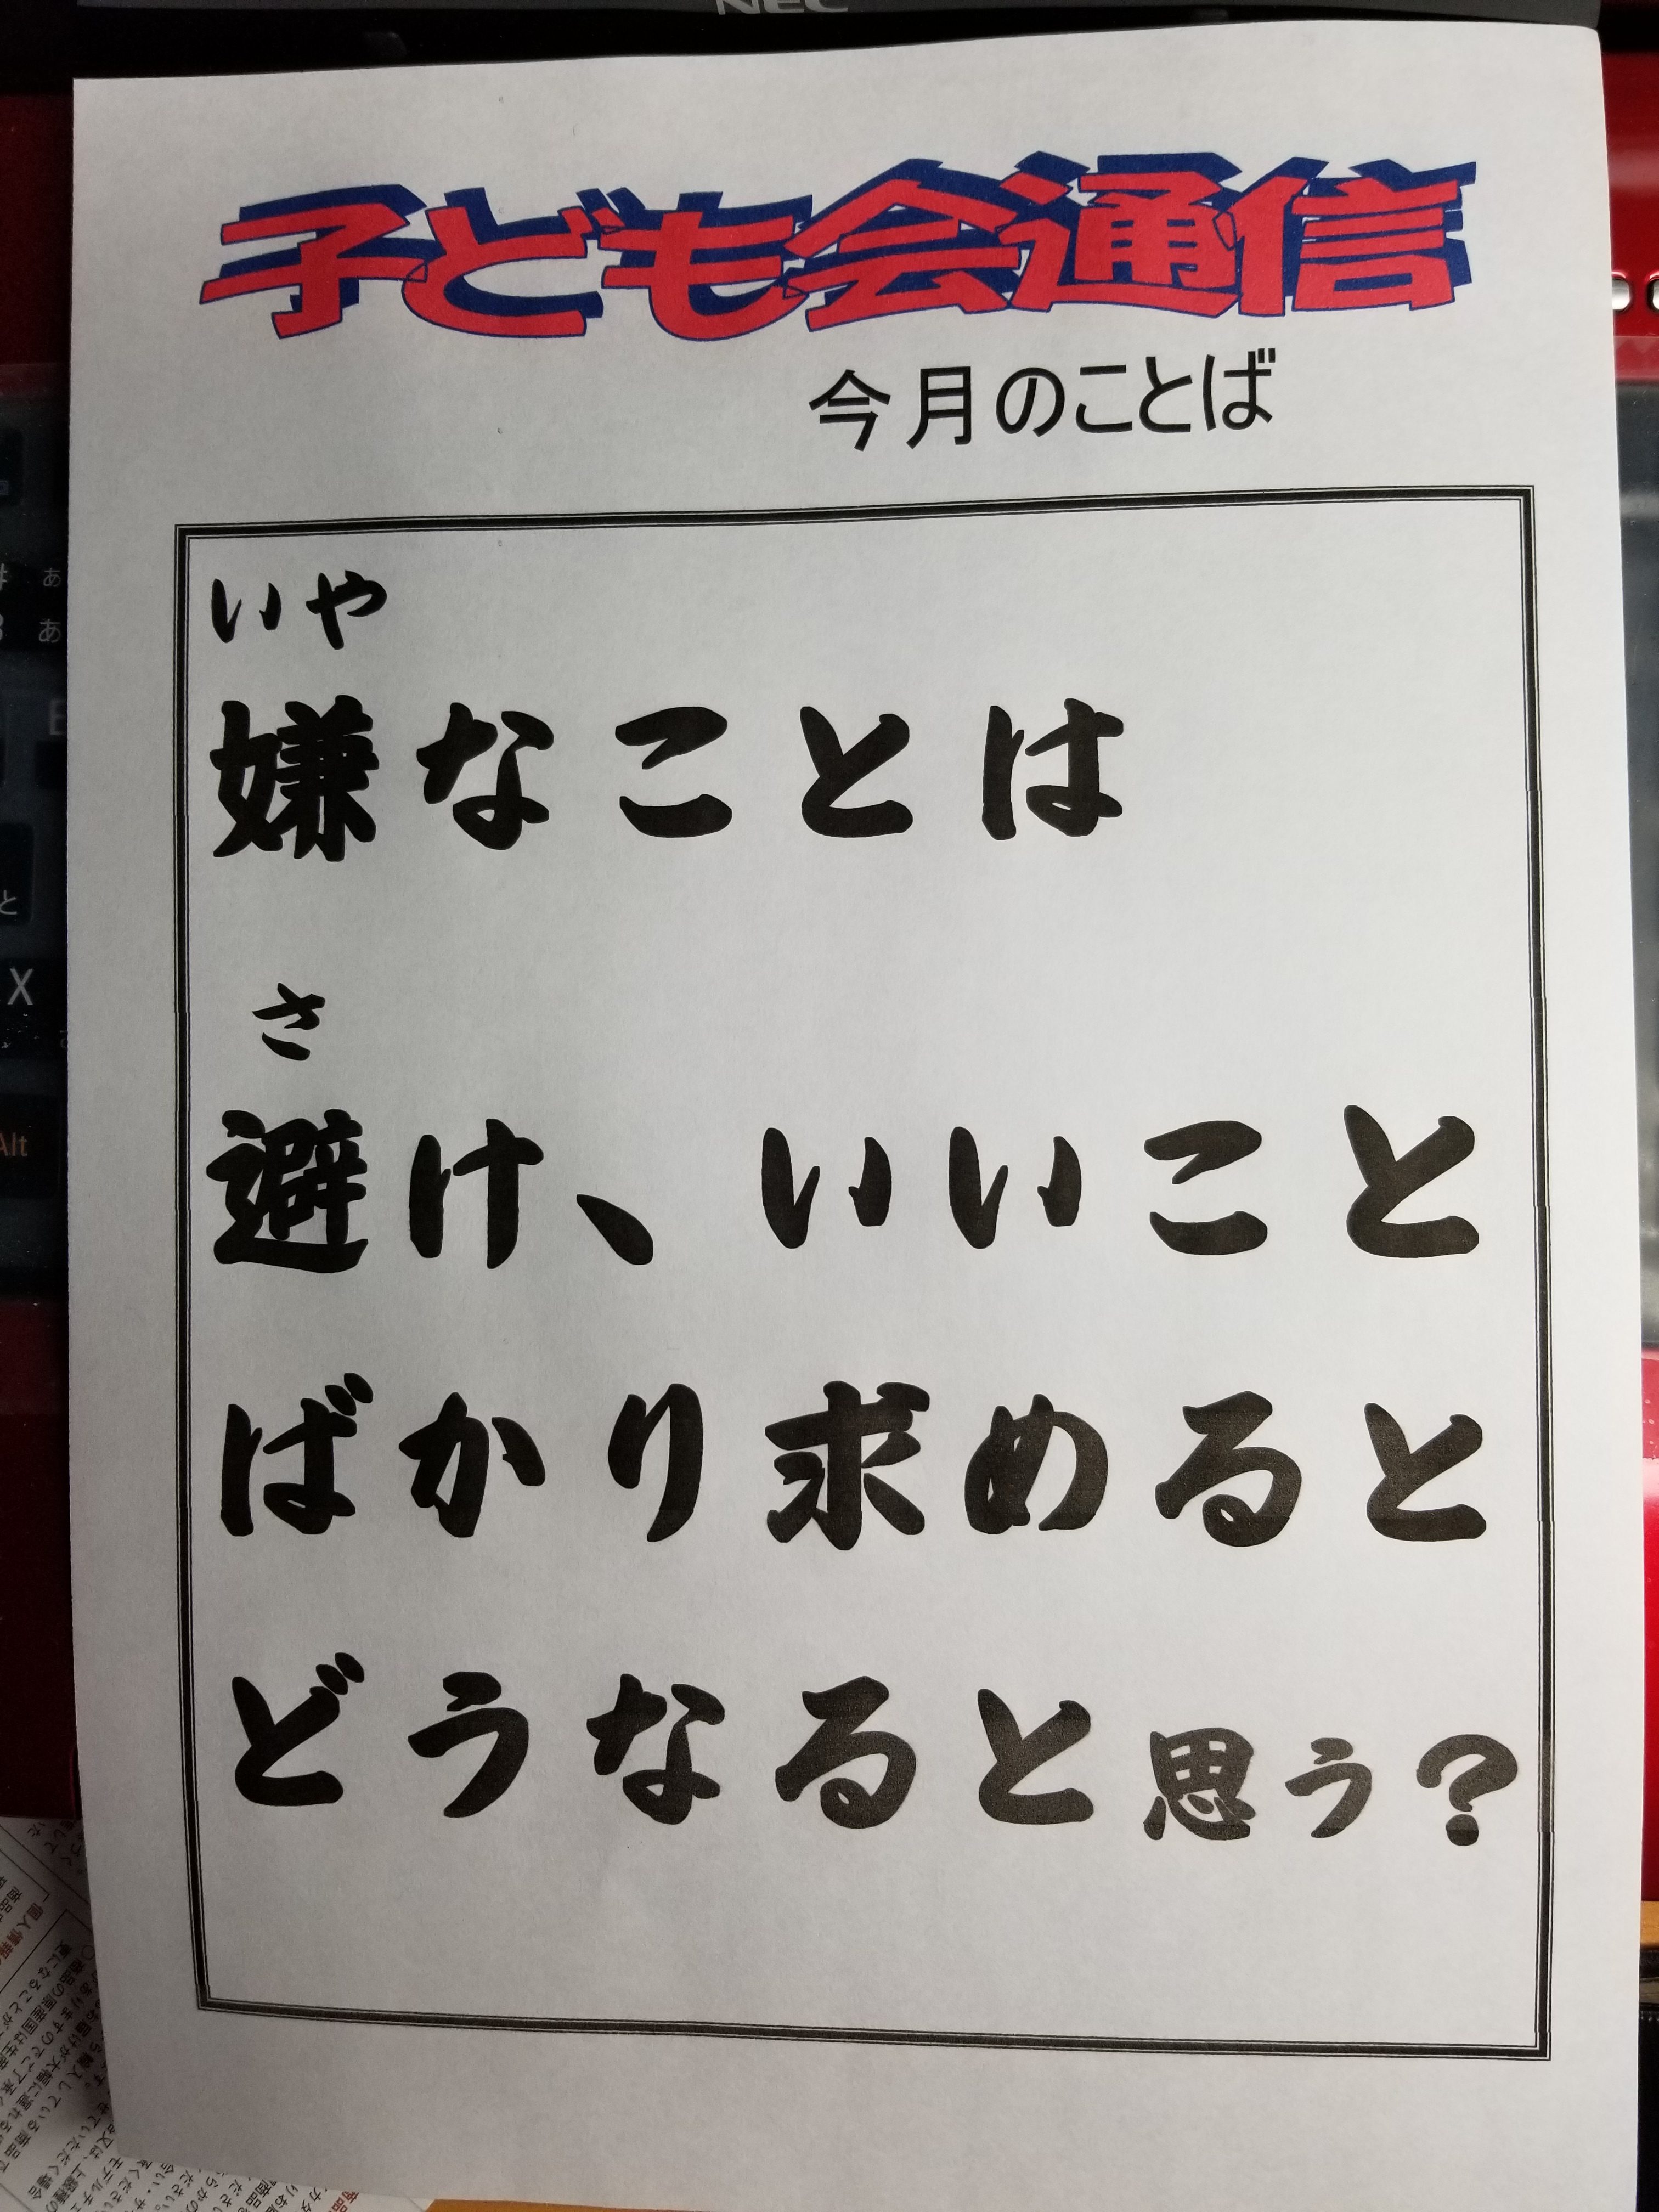 NEC
子ども会通信
今月のことば
いや
嫌なことは
さ
避け、いいこと
ばかり求めると
どうなると思う?
あ
あ
と
X
Alt